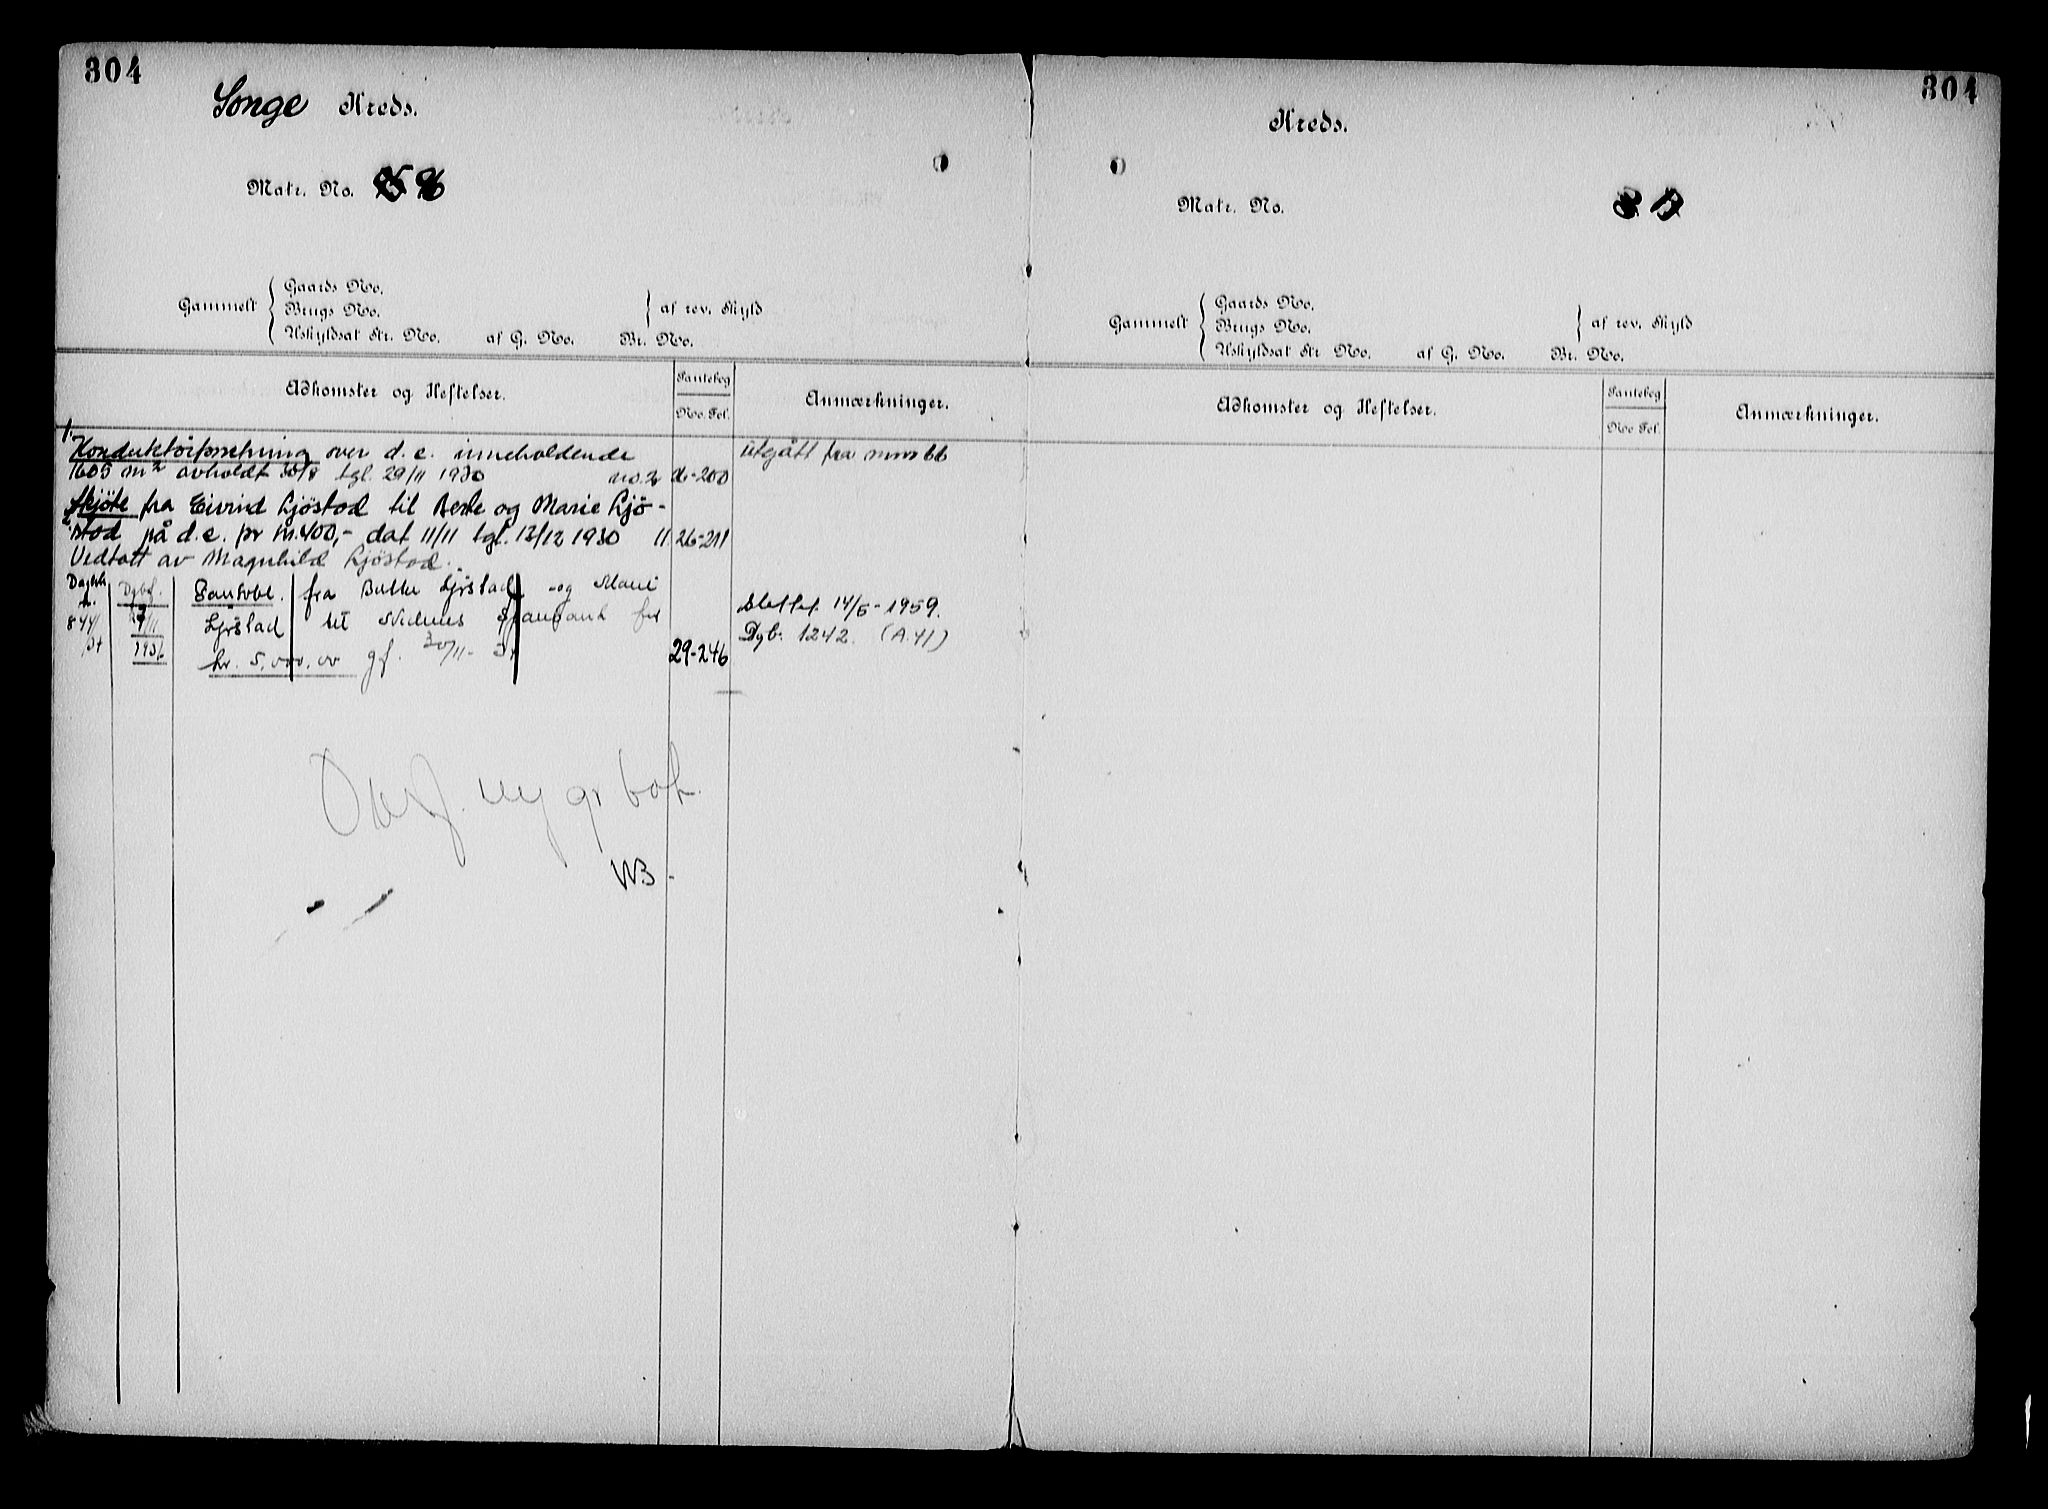 304
Songe Kreds.
Matr. No.
Gammelt
Gaards No.
Brugs No.
Uskyldsat Str. No. af G. No. Br. No.
af rev. Skyld
Adkomster og Heftelser.
Pantebog
No. Fol.
Anmærkninger.
1. Konduktörforretning over d. e. inneholdende
1605 m² avholdt 30/8 tgl. 29/11 1930 no. 2 26-200
utgått fra mnr 66
Skjöte fra Eivind Ljöstad til Berte og Marie Ljö-
stad på d. e. for kr. 400,- dat 11/11 tgl. 13/12 1930 11. 26-211
Vedtatt av Magnhild Ljöstad.
Dagbk
844/
34
Dgbf.
1934
Pantobl. fra Berthe Ljöstad og Marie
Ljöstad til Nedenes Spareank for
kr. 5,000,00 gf. 30/11-34
29-246
Slettet 14/5-1959.
Dgb. 1242. (A.41)
Overf. ny gr bok.
304
Kreds.
Matr. No.
Gammelt
Gaards No.
Brugs No.
Uskyldsat Str No. af G. No. Br. No.
af rev. Skyld
Adkomster og Heftelser.
Pantebog
No Fol.
Anmærkninger.